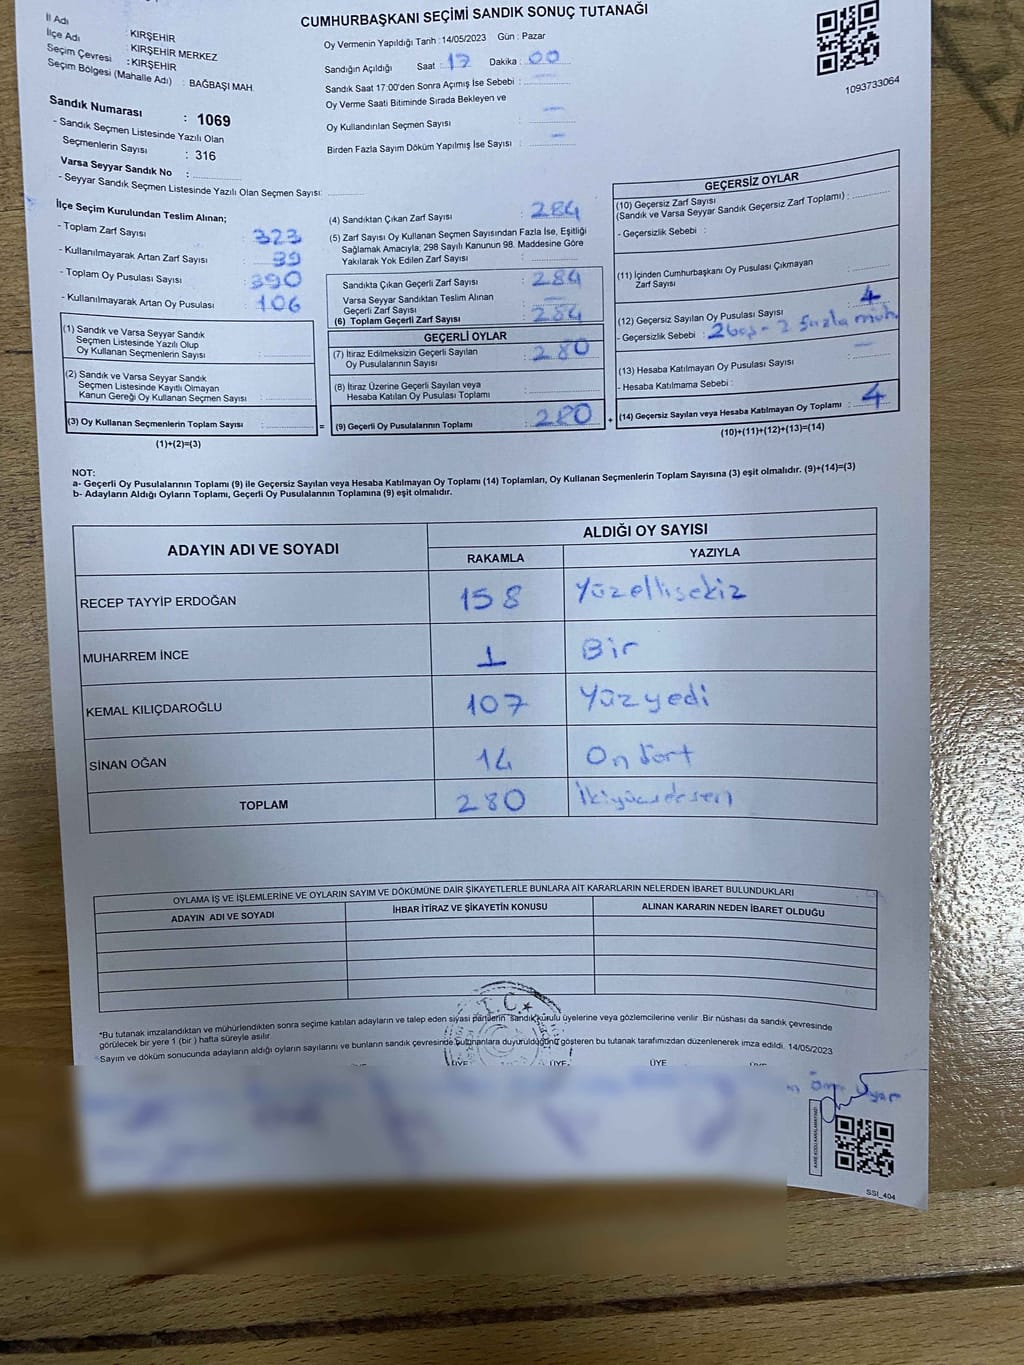 CUMHURBAŞKANI SEÇİMİ SANDIK SONUÇ TUTANAĞI
İl Adı : KIRŞEHİR
İlçe Adı : KIRŞEHİR MERKEZ
Seçim Çevresi : KIRŞEHİR
Seçim Bölgesi (Mahalle Adı) : BAĞBAŞI MAH.
Sandık Numarası : 1069
- Sandık Seçmen Listesinde Yazılı Olan
Seçmenlerin Sayısı : 316
Varsa Seyyar Sandık No :
- Seyyar Sandık Seçmen Listesinde Yazılı Olan Seçmen Sayısı:
Oy Vermenin Yapıldığı Tarih : 14/05/2023 Gün : Pazar
Sandığın Açıldığı Saat : 17 Dakika : 00
Sandık Saat 17:00'den Sonra Açımış İse Sebebi : —
Oy Verme Saati Bitiminde Sırada Bekleyen ve
Oy Kullandırılan Seçmen Sayısı : —
Birden Fazla Sayım Döküm Yapılmış İse Sayısı : —
1093733064
İlçe Seçim Kurulundan Teslim Alınan;
- Toplam Zarf Sayısı : 323
- Kullanılmayarak Artan Zarf Sayısı : 39
- Toplam Oy Pusulası Sayısı : 390
- Kullanılmayarak Artan Oy Pusulası : 106
(1) Sandık ve Varsa Seyyar Sandık
Seçmen Listesinde Yazılı Olup
Oy Kullanan Seçmenlerin Sayısı :
(2) Sandık ve Varsa Seyyar Sandık
Seçmen Listesinde Kayıtlı Olmayan
Kanun Gereği Oy Kullanan Seçmen Sayısı :
(3) Oy Kullanan Seçmenlerin Toplam Sayısı :
(1)+(2)=(3)
(4) Sandıktan Çıkan Zarf Sayısı : 284
(5) Zarf Sayısı Oy Kullanan Seçmen Sayısından Fazla İse, Eşitliği
Sağlamak Amacıyla, 298 Sayılı Kanunun 98. Maddesine Göre
Yakılarak Yok Edilen Zarf Sayısı :
Sandıkta Çıkan Geçerli Zarf Sayısı : 284
Varsa Seyyar Sandıktan Teslim Alınan
Geçerli Zarf Sayısı : —
(6) Toplam Geçerli Zarf Sayısı : 284
GEÇERLİ OYLAR
(7) İtiraz Edilmeksizin Geçerli Sayılan
Oy Pusulalarının Sayısı : 280
(8) İtiraz Üzerine Geçerli Sayılan veya
Hesaba Katılan Oy Pusulası Toplamı :
= (9) Geçerli Oy Pusulalarının Toplamı : 280 +
GEÇERSİZ OYLAR
(10) Geçersiz Zarf Sayısı
(Sandık ve Varsa Seyyar Sandık Geçersiz Zarf Toplamı) :
- Geçersizlik Sebebi :
(11) İçinden Cumhurbaşkanı Oy Pusulası Çıkmayan
Zarf Sayısı :
(12) Geçersiz Sayılan Oy Pusulası Sayısı : 4
- Geçersizlik Sebebi : 2 boş - 2 fazla müh.
(13) Hesaba Katılmayan Oy Pusulası Sayısı : —
- Hesaba Katılmama Sebebi :
(14) Geçersiz Sayılan veya Hesaba Katılmayan Oy Toplamı : 4
(10)+(11)+(12)+(13)=(14)
NOT:
a- Geçerli Oy Pusulalarının Toplamı (9) ile Geçersiz Sayılan veya Hesaba Katılmayan Oy Toplamı (14) Toplamları, Oy Kullanan Seçmenlerin Toplam Sayısına (3) eşit olmalıdır. (9)+(14)=(3)
b- Adayların Aldığı Oyların Toplamı, Geçerli Oy Pusulalarının Toplamına (9) eşit olmalıdır.
ADAYIN ADI VE SOYADI ALDIĞI OY SAYISI
RAKAMLA YAZIYLA
RECEP TAYYİP ERDOĞAN 158 Yüzellisekiz
MUHARREM İNCE 1 Bir
KEMAL KILIÇDAROĞLU 107 Yüzyedi
SİNAN OĞAN 14 On dört
TOPLAM 280 İkiyüzseksen
OYLAMA İŞ VE İŞLEMLERİNE VE OYLARIN SAYIM VE DÖKÜMÜNE DAİR ŞİKAYETLERLE BUNLARA AİT KARARLARIN NELERDEN İBARET BULUNDUKLARI
ADAYIN ADI VE SOYADI İHBAR İTİRAZ VE ŞİKAYETİN KONUSU ALINAN KARARIN NEDEN İBARET OLDUĞU
T.C.
*Bu tutanak imzalandıktan ve mühürlendikten sonra seçime katılan adayların ve talep eden siyasi partilerin sandık kurulu üyelerine veya gözlemcilerine verilir. Bir nüshası da sandık çevresinde
görülecek bir yere 1 (bir) hafta süreyle asılır
*Sayım ve döküm sonucunda adayların aldığı oyların sayılarını ve bunların sandık çevresinde bulunanlara duyurulduğunu gösteren bu tutanak tarafımızdan düzenlenerek imza edildi. 14/05/2023
ÜYE ÜYE ÜYE
Uyar
SSI_404